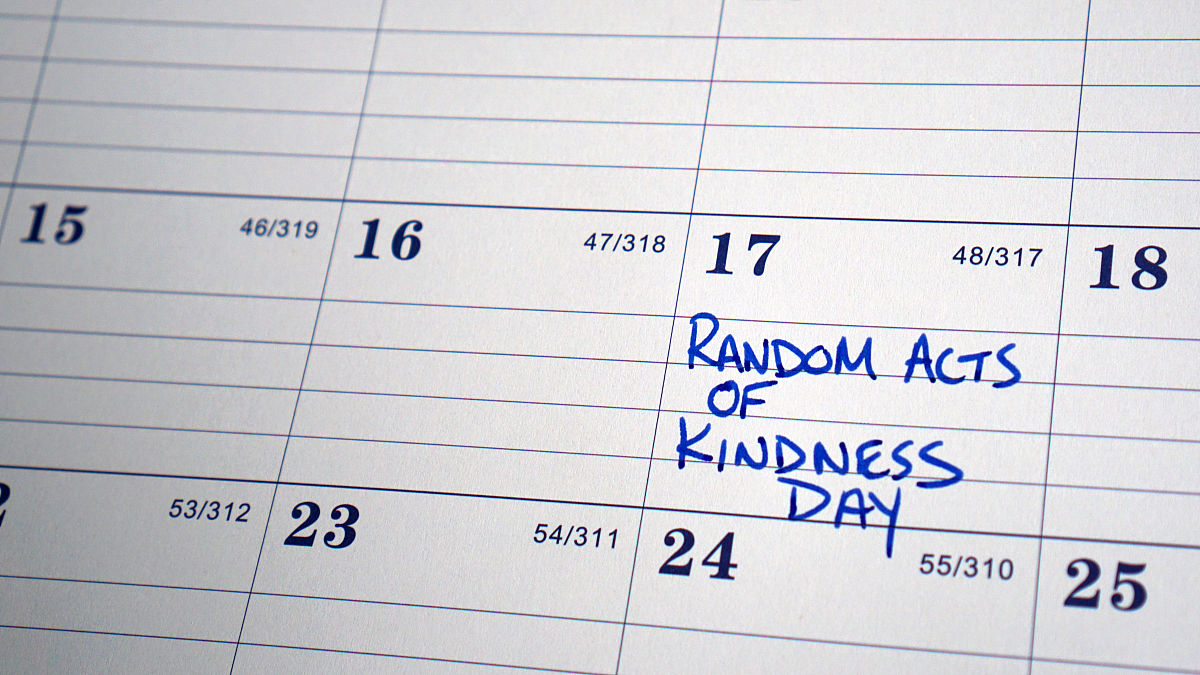 15 46/319 16 47/318 17 48/317 18
RANDOM ACTS
OF
KINDNESS
DAY
53/312 23 54/311 24 55/310 25